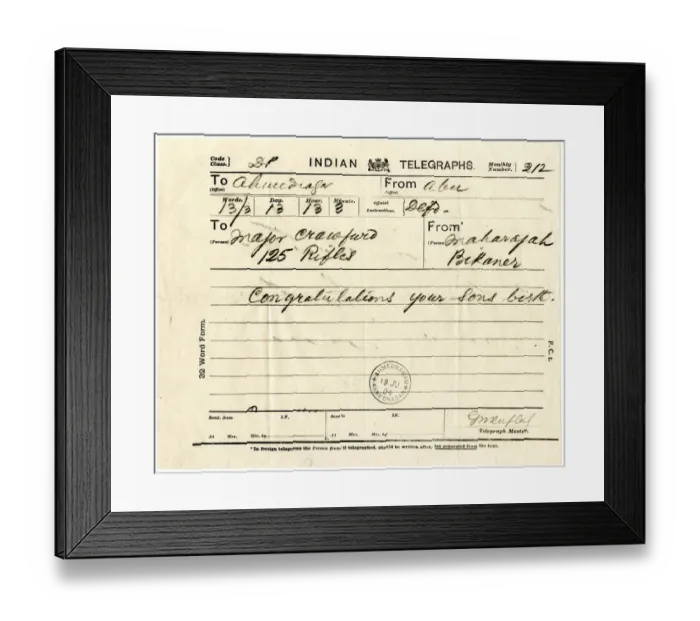 Code.
Class. } DP INDIAN TELEGRAPHS. Monthly Number. } 212
To Ahmednagar From Abu
(Office) (Office)
Words. Day. Hour. Minute. Official Instruction. Defd.
13/3 13 13 3
To Major Crawford From Maharajah
(Person) 125 Rifles (Person) Bikaner
Congratulations your sons birth.
32 Word Form.
P.C.I.
19 JU
Sent from Sent to
At Hrs. Min. by At Hrs. Min. by
Telegraph Master.
*In foreign telegrams the Person from if telegraphed, should be written after, but separated from the text.